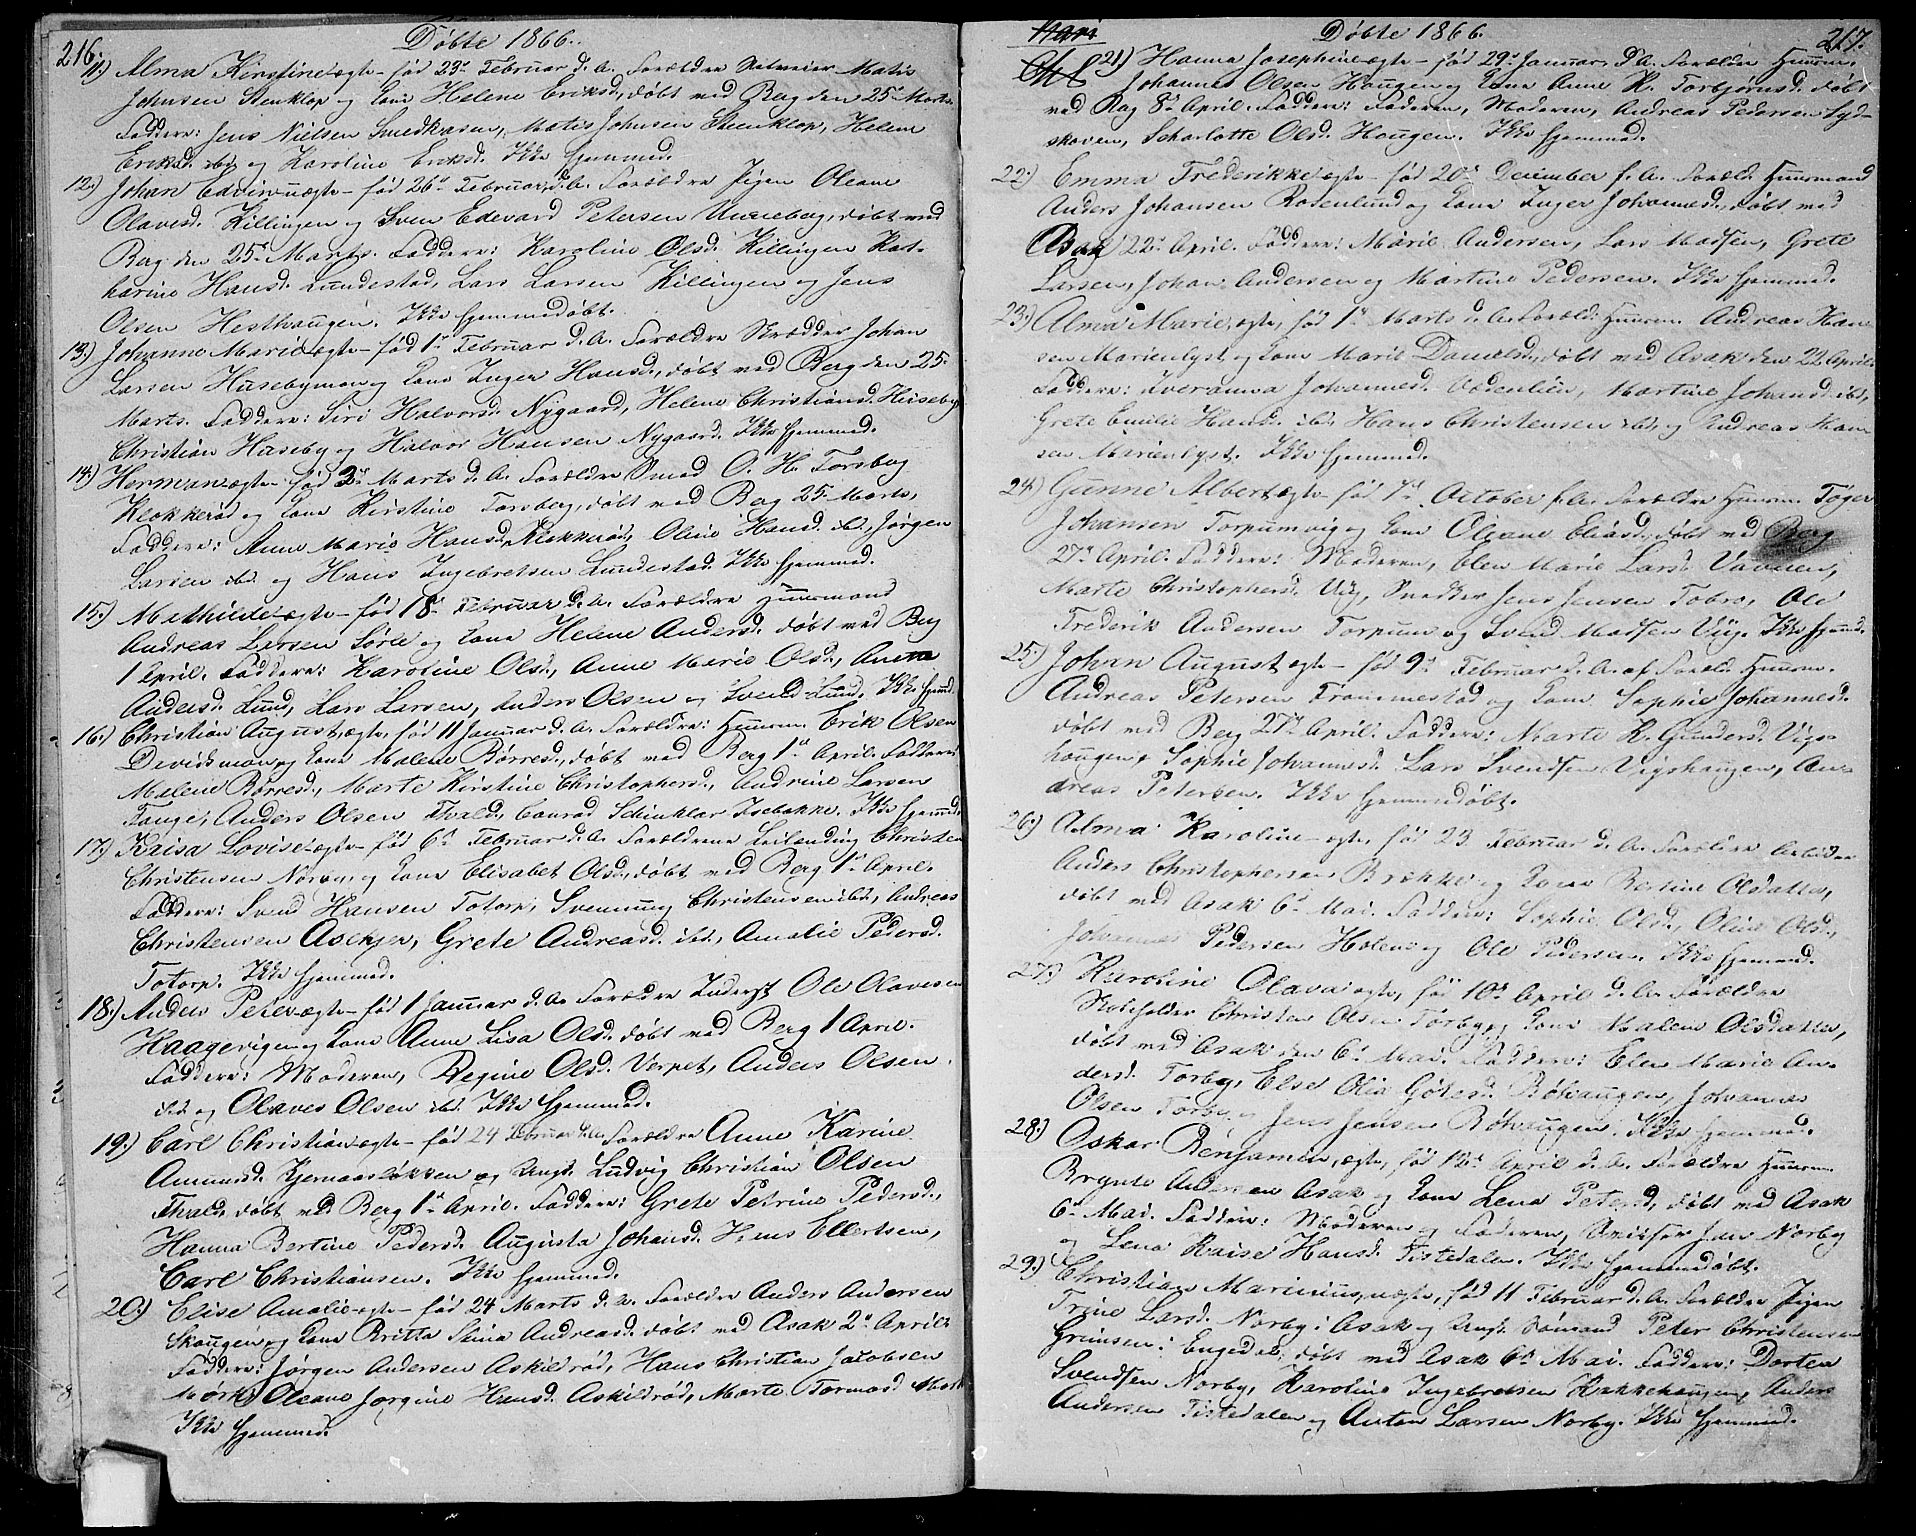 216.
Døbte 1866.
11.) Alma Kirstine ægte – fød 23de Februar d. A. Forældre Matis
Johnsen Stenklop og Kone Helene Eriksd., døbt ved Berg den 25de Marts.
Faddere: Jens Nielsen Smedkasen, Matis Johnsen Stenklop, Helene
Eriksd. ibd. og Karoline Eriksd. Ikke hjemmed.
12.) Johan Edvin uægte – fød 26de Februar d. A. Forældre Pigen Oleane
Olavesd. Killingen og Sven Edevard Petersen Unneberg, døbt ved
Berg den 25de Marts. Faddere: Karoline Olsd. Killingen Kat-
harine Hansd. Lundestad, Lars Larsen Killingen og Jens
Olsen Hesthaugen. Ikke hjemmedøbt.
13.) Johanne Marie ægte – fød 1ste Februar d. A. Forældre Skrædder Johan
Larsen Husebymon og Kone Inger Hansd., døbt ved Berg den 25.
Marts. Faddere: Siri Halvorsd. Nygaard, Helene Christiansd. Huseby
Christian Huseby og Halvor Hansen Nygaard. Ikke hjemmed.
14.) Herman ægte – fød 2den Marts d. A. Forældre Smed O. H. Torsberg
Klokkerød og Kone Kirstine Torsberg, døbt ved Berg 25. Marts,
Faddere: Anne Marie Hansd. Klokkerød, Oline Hansd. ibd. Jørgen
Larsen ibd. og Hans Ingebretsen Lundestad. Ikke hjemmed.
15.) Mathilde ægte – fød 18de Februar d. A. Forældre Huusmand
Andreas Larsen Sørli og Kone Helene Andersd. døbt ved Berg
1 April. Faddere: Karoline Olsd., Anne Marie Olsd.,
Andersd. Lund, Lars Larsen, Anders Olsen og Svend Lund. Ikke hjemd.
16.) Christian August, ægte, fød 11 Januar d. A. Forældre: Huusm. Erik Olsen
Devidsmon og Kone Malene Børresd., døbt ved Berg 1ste April. Faddere:
Malene Børresd., Marte Kirstine Christophersd., Andrine Larsen
Tange, Anders Olsen Fvald, Conrad Schinklar Isebakke. Ikke hjemmd.
17.) Kaisa Lovise ægte – fød 6te Februar d. A. Forældrene Leilænding Christen
Christensen Norum og Kone Elisabet Olsd., døbt ved Berg 1ste April.
Faddere: Svend Hansen Totorp, Svennung Christensen ibd., Andreas
Christensen Asekjer, Grete Andreasd. ibd., Amalie Pedersd.
Totorp. Ikke hjemmed.
18.) Anders Peter ægte – fød 1 Januar d. A. Forældre Inderst Ole Olavesen
Haagerigen og Kone Anne Lisa Olsd. døbt ved Berg 1 April.
Faddere: Moderen, Regine Olsd. Verpet, Anders Olsen
ibd. og Olaves Olsen ibd. Ikke hjemmed.
19.) Carl Christian ægte – fød 24 Februar d. A. Forældre Anne Karine
Amundsd. Kjernaasløkken og Ungk. Ludvig Christian Olsen
Fvald, døbt ved Berg 1ste April. Faddere: Grete Petrine Pedersd.,
Hanna Bertine Pedersd. Augusta Johansd. Hans Ellertsen,
Carl Christiansen. Ikke hjemmed.
20.) Elise Amalie ægte – fød 24 Marts d. A. Forældre Anders Andersen
Skougen og Kone Britta Stina Andreasd. døbt ved Asak 2den April.
Faddere: Jørgen Andersen Askildrød, Hans Christian Jacobsen
Mørk, Oleane Jørgine Hansd. Askildrød, Marte Tormod Mørk
Ikke hjemmed.
Døbte 1866.
217.
21.) Hanna Josephine ægte – fød 29de Januar d. A. Forældre Huusm.
Johannes Olsen Haugen og Kone Anne K. Torbjørnsd. døbt
ved Berg 8de April. Faddere: Faderen, Moderen, Andreas Pedersen Syd-
skoven, Scharlotte Olsd. Haugen. Ikke hjemmed.
22.) Emma Frederikke ægte – fød 20de December f. A. Foræld. Huusmand
Anders Johansen Rosenlund og Kone Inger Johannesd., døbt ved
Asak 22de April. Faddere: Marie Andersen, Lars Madsen, Grete
Larsen, Johan Andersen og Martine Pedersen. Ikke hjemmed.
23.) Alma Marie, ægte, fød 1ste Marts d. A. Foræld. Huusm. Andreas Han-
sen Marienlyst og Kone Marie Danielsd., døbt ved Asak den 22 April.
Faddere: Iveranna Johannesd. Aadenlien, Martine Johansd. ibd.,
Grete Emilie Hansd. ibd. Hans Christensen ibd. og Andreas Han-
sen Marienlyst. Ikke hjemmed.
24.) Gunne Albert ægte – fød 1ste October f. A. Forældre Huusm. Tøger
Johansen Torpumvig og Kone Oleane Eliasd., døbt ved Berg
27de April. Faddere: Moderen, Elen Marie Larsd.
Marte Christophersd. Viig, Snedker Jens Jensen Tobro, Ole
Frederik Andersen Torpum og Svend Madsen Viig. Ikke hjemmd.
25.) Johan August ægte – fød 9de Februar d. A. af Foræld. Huusm.
Andreas Petersen Trommestad og Kone Sophie Johannesd.
døbt ved Berg 27de April. Faddere: Marte K. Gundersd. Vigs-
haugen, Sophie Johannesd. Lars Svendsen Vigshaugen, An-
dreas Petersen. Ikke hjemmedøbt.
26.) Alma Karoline – ægte, fød 23. Februar d. A. Forældre Arbeider
Anders Christophersen Brække og Kone Bertine Olsdatter,
døbt ved Asak 6te Mai. Faddere: Sophie Olsd., Oline Olsd.,
Johannes Pedersen Holene og Ole Pedersen. Ikke hjemmed.
27.) Karoline Olava ægte, fød 10de April d. A. Forældre
Christen Olsen Torby, og Kone Malene Olsdatter,
døbt ved Asak den 6te Mai. Faddere: Elen Marie An-
dersd. Torby, Else Olea Gøtesd. Røhaugen, Johannes
Olsen Torby og Jens Jensen Røhaugen. Ikke hjemmed.
28.) Oskar Benjamin, ægte, fød 12te April d. A. Forældre Huusm.
Brynte Andersen Asak og Kone Lena Petersd., døbt ved Asak
6te Mai. Faddere: Moderen og Faderen, Jan Norby
og Lena Kaise Hansd. Tistedalen. Ikke hjemmedøbt.
29.) Christian Marinius, uægte, fød 11 Februar d. A. Forældre Pigen
Trine Larsd. Norby i Asak og Ungk. Sømand Peter Christensen
Grimsen i Engedal, døbt ved Asak 6te Mai. Faddere: Dorten
Svendsen Norby, Karoline Ingebretsen Kakkehaugen, Anders
Andersen Tistedalen og Anton Larsen Norby. Ikke hjemmed.